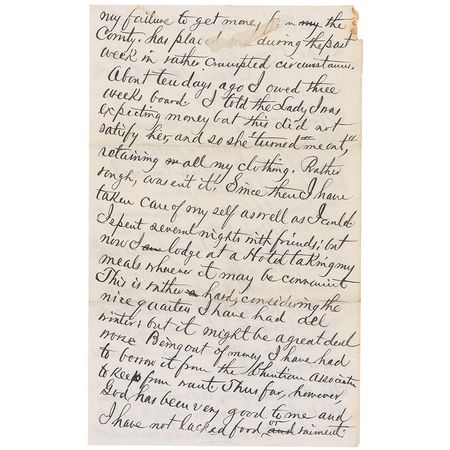 my failure to get money from the
County. has placed me during the past
week in rather cramped circumstances.
About ten days ago I owed three
weeks board. I told the Lady I was
expecting money but this did not
satisfy her, and so she "turned" me out,"
retaining all my clothing. Rather
rough, wasn't it! Since then I have
taken care of my self as well as I could
I spent several nights with friends; but
now I lodge at a Hotel taking my
meals wherever it may be convenient
This is rather hard, considering the
nice quarters I have had all
winter; but it might be a great deal
worse Being out of money I have had
to borrow it from the Christian Association
to keep from want Thus far, however,
God has been very good to me and
I have not lacked food or raiment